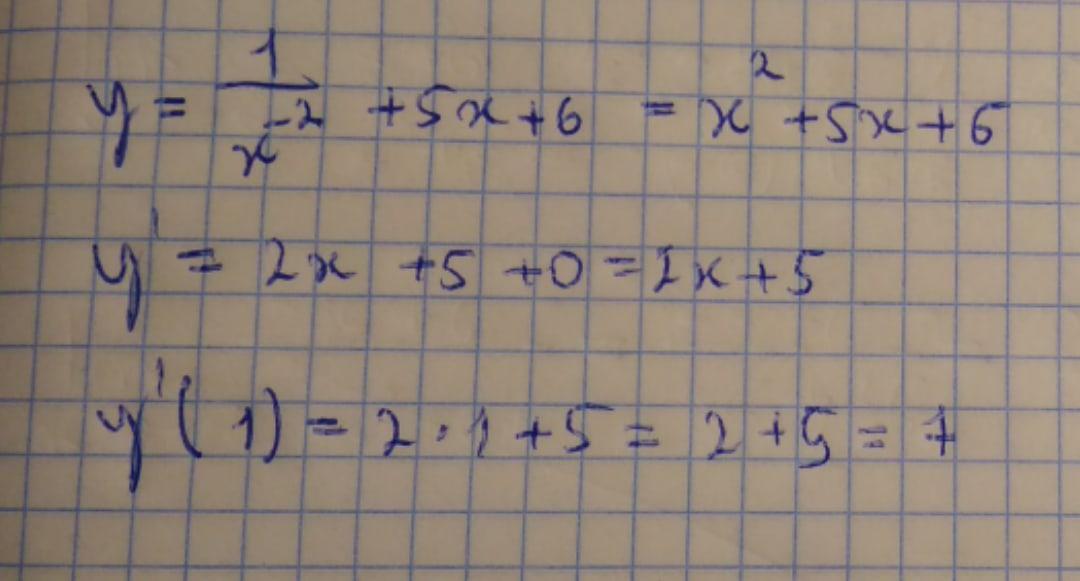 y = 1/x⁻² + 5x + 6 = x² + 5x + 6
y' = 2x + 5 + 0 = 2x + 5
y'(1) = 2 · 1 + 5 = 2 + 5 = 7